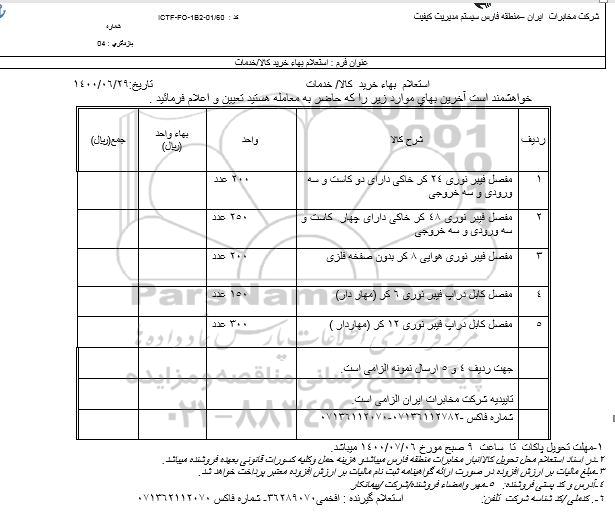 شرکت مخابرات ایران –منطقه فارس سیستم مدیریت کیفیت
کد : ICTF-FO-1B2-01/60
شماره
بازنگري : 04
عنوان فرم : استعلام بهاء خرید کالا/خدمات
استعلام بهاء خرید کالا/ خدمات تاریخ:۱۴۰۰/۰۶/۲۹
خواهشمند است آخرین بهاي موارد زیر را که حاضر به معامله هستید تعیین و اعلام فرمائید .
ردیف شرح کالا واحد بهاء واحد (ریال) جمع(ریال)
۱ مفصل فیبر نوری ۲۴ کر خاکی دارای دو کاست و سه ورودی و سه خروجی ۲۰۰ عدد
۲ مفصل فیبر نوری ۴۸ کر خاکی دارای چهار کاست و سه ورودی و سه خروجی ۲۵۰ عدد
۳ مفصل فیبر نوری هوایی ۸ کر بدون صفحه فلزی ۲۰۰ عدد
۴ مفصل کابل دراپ فیبر نوری ۶ کر (مهار دار) ۱۵۰ عدد
۵ مفصل کابل دراپ فیبر نوری ۱۲ کر (مهاردار ) ۳۰۰ عدد
جهت ردیف ۴ و ۵ ارسال نمونه الزامی است.
تاییدیه شرکت مخابرات ایران الزامی است
شماره فاکس ۰۷۱۳۶۱۱۲۷۸۲-۰۷۱۳۶۱۱۲۰۷۰
ParsNamadData
مرکز فرآوری اطلاعات پارس نماد داده ها
پایگاه اطلاع رسانی مناقصه و مزایده
۰۲۱-۸۸۳۴۹۶۷۰-۵
۱-مهلت تحویل پاکات تا ساعت ۹ صبح مورخ ۱۴۰۰/۰۷/۰۶ میباشد.
۲-در اسناد استعلام محل تحویل کالاانبار مخابرات منطقه فارس میباشدو هزینه حمل وکلیه کسورات قانونی بعهده فروشنده میباشد.
۳-مبلغ مالیات بر ارزش افزوده در صورت ارائه گواهینامه ثبت نام مالیات بر ارزش افزوده معتبر پرداخت خواهد شد.
۴-آدرس و کد پستی فروشنده: ۵-مهر وامضاء فروشنده/شرکت /پیمانکار
۶-کدملی /کد شناسه شرکت تلفن: استعلام گیرنده : افخمی۳۶۲۸۹۰۷۰- شماره فاکس ۰۷۱۳۶۲۱۱۲۰۷۰